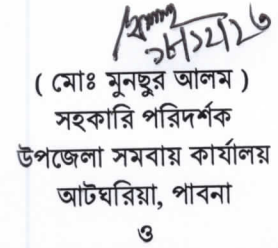 ১৮/১২/২৩
( মোঃ মুনছুর আলম )
সহকারি পরিদর্শক
উপজেলা সমবায় কার্যালয়
আটঘরিয়া, পাবনা
ও